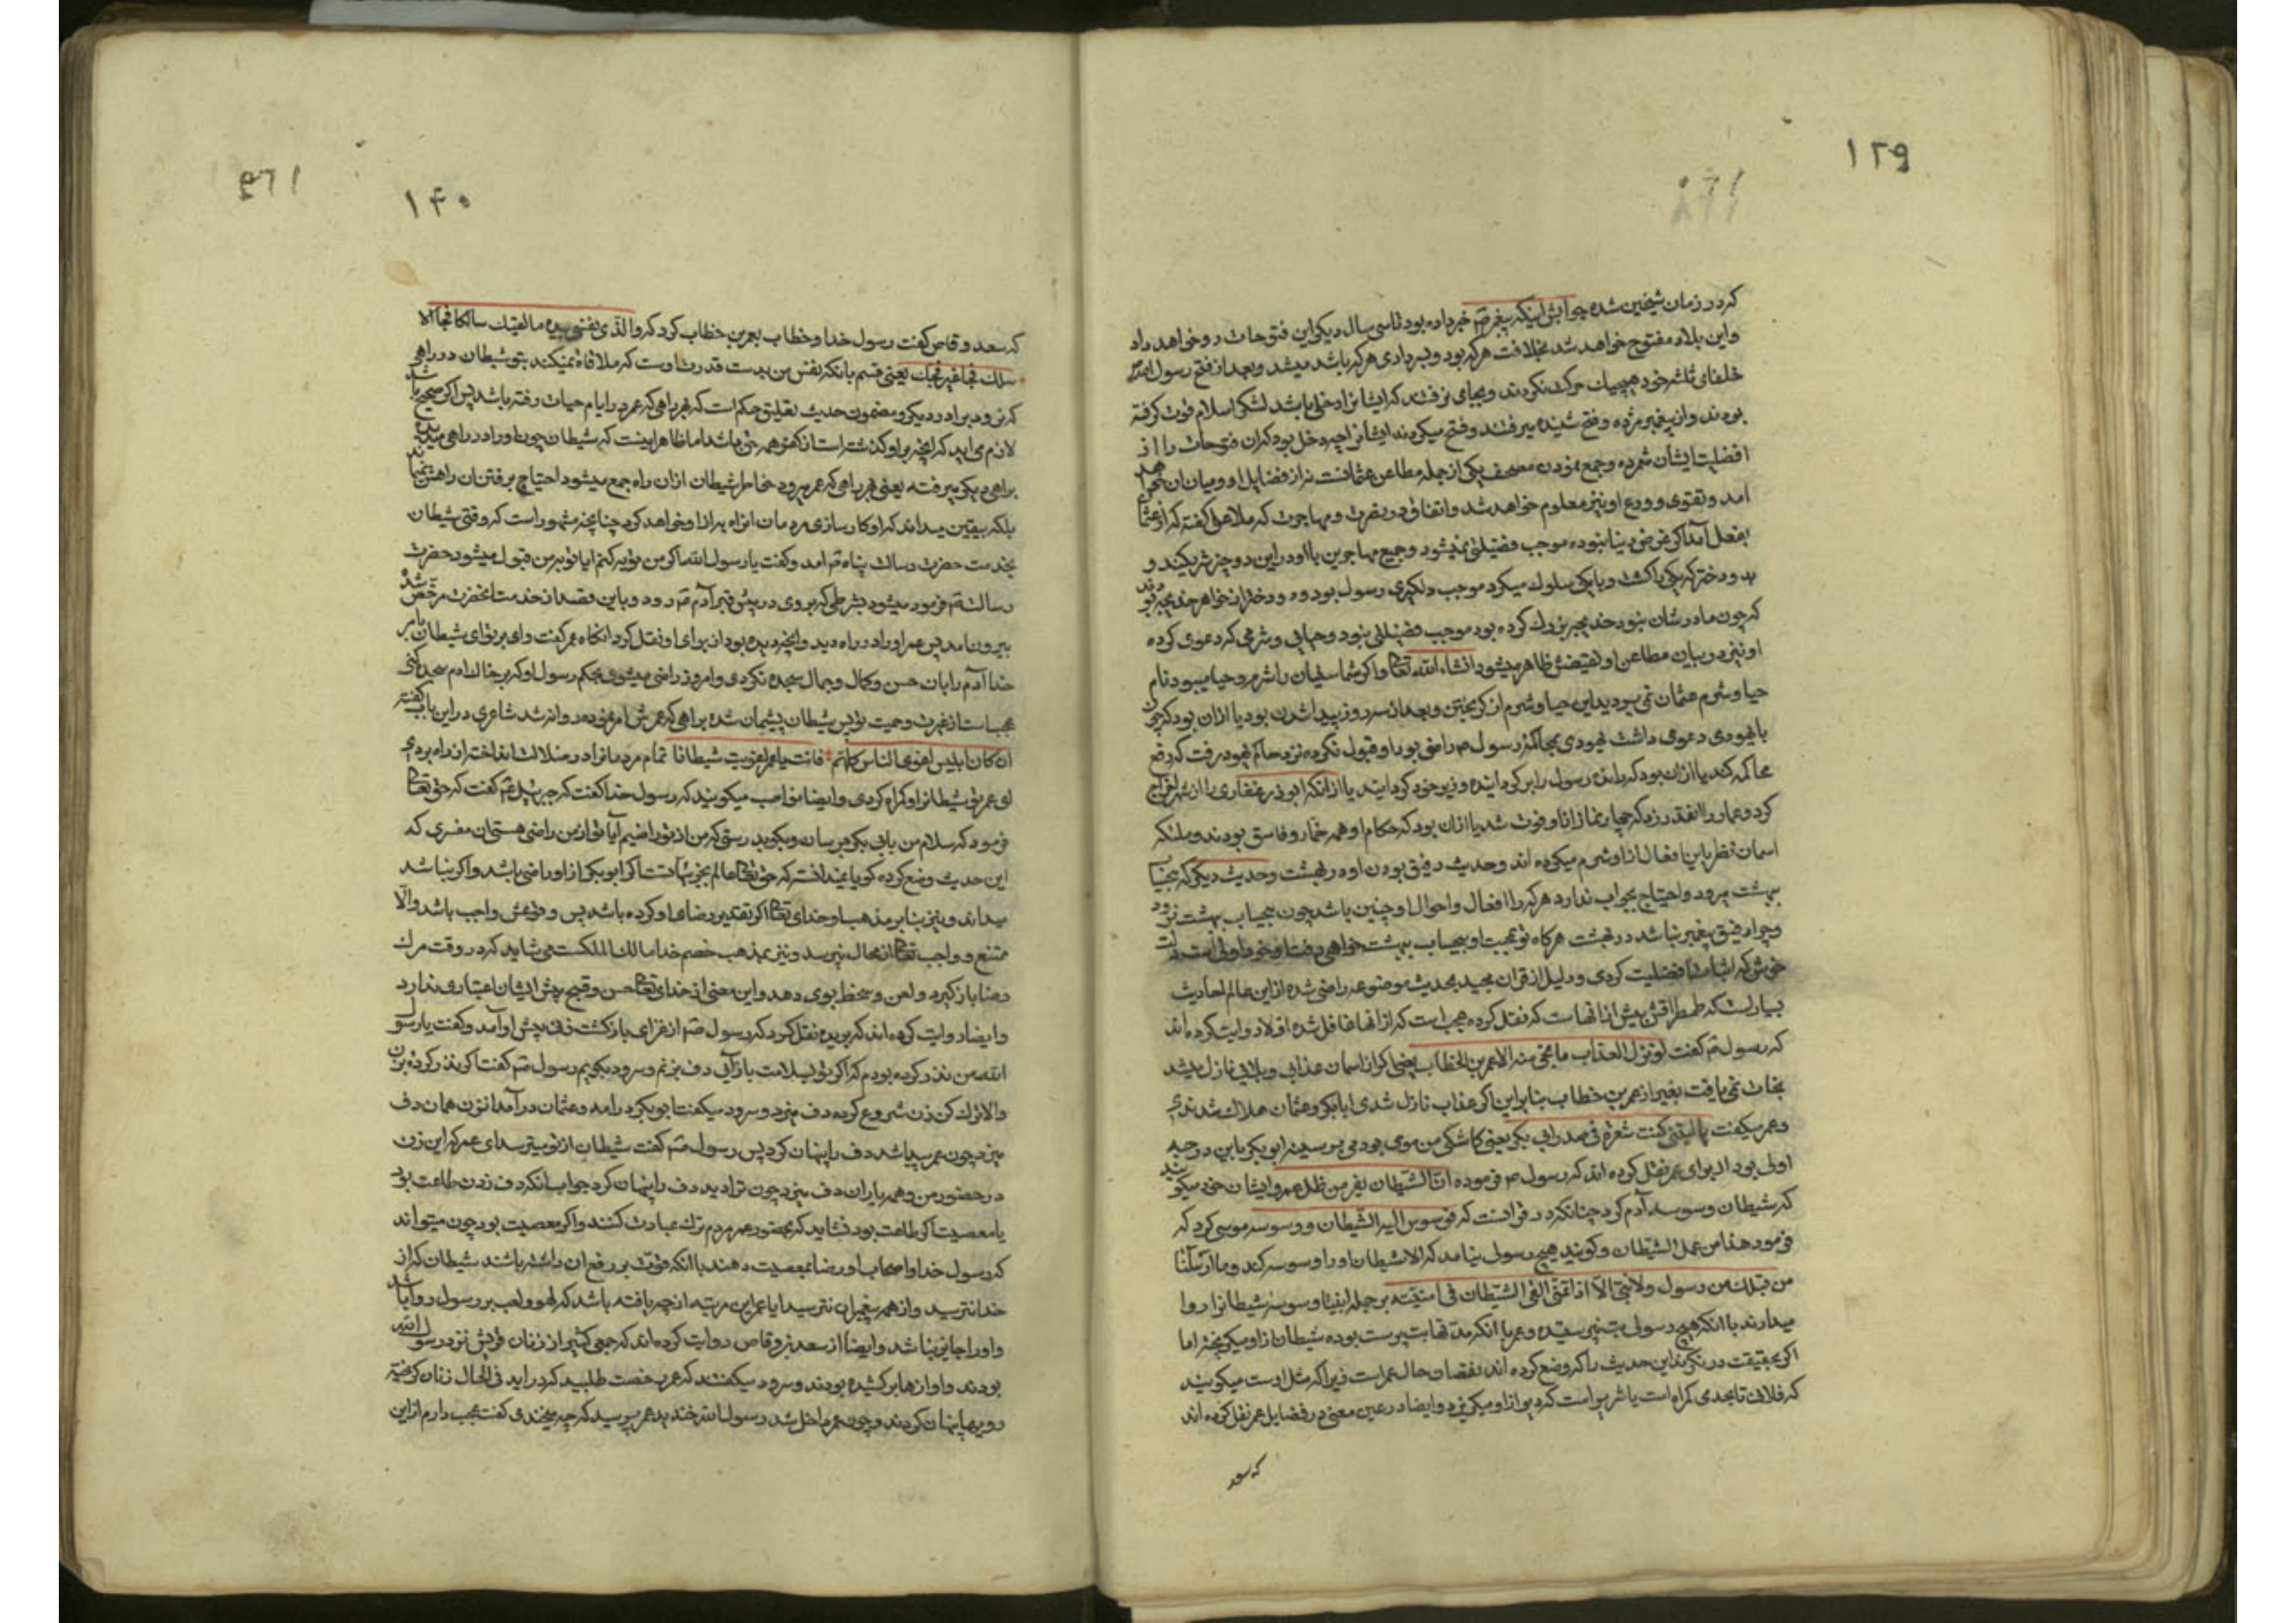 ۱۳۹
که در زمان شیخین شده جوابش اینکه پیغمبر خبر داده بود تا سی سال دیگر این فتوحات رو خواهد داد
و این بلاد مفتوح خواهد شد بخلافت هرکه بود و بسرداری هرکه باشد میشد و بعد از فتح رسول
خلفای ثلثه خود هیچیک حرکت نکردند و بجای نرفتند که ایشانرا دخلی باشد لشکر اسلام قوت گرفته
بودند و از پیغمبر مژده و فتح شنیده میرفتند و فتح میکردند ایشانرا چه دخل بود که آن فتوحات را از
افضلیت ایشان شمرده و جمع نمودن مصحف یکی از جمله مطاعن عثمانست نه از فضایل او و میان آن
آمد و تقوی و ورع او نیز معلوم خواهد شد و انفاق در نصرت و مهاجرت که ملا علی گفته که از
بفعل آمد اگر غرض دینا نبوده موجب فضیلتی نمیشود و جمیع مهاجرین با او در این دو چیز شریکند و
دو دختر که یکی را کشت و با یکی سلوک میکرد موجب دلگیری رسول بود و دو دختر از خواهر خدیجه
که چون مادرشان نبود خدیجه بزرگ کرده بود موجب فضیلتی نبود و حیایی و شرمی که دعوی کرده
او نیز در بیان مطاعن او نقیضش ظاهر میشود انشاء الله تعالی و اگر شما سنیان را شرم و حیا میبود نام
حیا و شرم عثمان نمی بردید این حیا و شرم از گریختن و بعد از سه روز پیدا شدن بود یا از آن بود که چون
با یهودی دعوی داشت یهودی بمحاکمه رسول راضی بود او قبول نکرده نزد حاکم یهود رفت که رفع
محاکمه کند یا از آن بود که رانده رسول را برگردانیده وزیر خود گردانید یا از آنکه ابوذر غفاری را از شهر اخراج
کرد و عمار را آنقدر زد که چهار نماز از او فوت شد یا از آن بود که حکام او همه خمار و فاسق بودند و ملئکه
اسمان نظر باین افعال از او شرم میکرده اند و حدیث رفیق بودن او در بهشت و حدیث دیگر که بیحساب
بهشت میرود احتیاج بجواب ندارد هرکه را افعال و احوال او چنین باشد چون بیحساب بهشت نرود
و چرا رفیق پیغمبر نباشد در بهشت هرگاه تو بمحبت او بیحساب ببهشت خواهی رفت او خود اولی است
خوش که اثبات افضلیت کردی و دلیل از قران مجید بحدیث موضوعه راضی شده از این عالم احادیث
بسیار است که طمطراقش بیش از انهاست که نقل کرده عجب است که از انها غافل شده اولا روایت کرده اند
که رسول گفت لو نزل العذاب ما نجی منه الا عمر بن الخطاب یعنی اگر از اسمان عذابی و بلایی نازل میشد
نجات نمی یافت بغیر از عمر بن خطاب بنابراین اگر عذاب نازل شدی ابابکر و عثمان هلاک شدندی
و عمر میگفت یا لیتنی کنت شعرة فی صدر ابی بکر یعنی کاشکی من موی بودمی بر سینه ابوبکر باین دو حدیث
اولی بود و برای عمر نقل کرده اند که رسول فرموده ان الشیطان یفر من ظل عمر و ایشان خود میگویند
که شیطان وسوسه آدم کرد چنانکه در قرانست که فوسوس الیه الشیطان و وسوسه موسی کرد که
فرمود هذا من عمل الشیطان و گویند هیچ رسول نیامد که الا شیطان او را وسوسه کند و ما ارسلنا
من قبلک من رسول و لا نبی الا اذا تمنی القی الشیطان فی امنیته بر جمله انبیا وسوسه شیطانرا روا
میدارند با انکه هیچ رسولی بت نپرستیده و عمر با انکه مدتها بت پرست بوده شیطان از او میگریخته اما
اگر بحقیقت در نگرند این حدیث را که وضع کرده اند نقصان حال عمر است زیرا که مثل است میگویند
که فلانی تا بحدی گمراه است یا شریر است که دیو از او میگریزد و ایضا در عین معنی در فضایل عمر نقل کرده اند
که سعد
۱۴۰
که سعد وقاص گفت رسول خدا و خطاب بعمر بن خطاب کرد که والذی نفسی بیده ما لقیک سالکا فجا الا
سلک فجا غیر فجک یعنی قسم بانکه نفس من بدست قدرت اوست که ملاقاة نمیکند بتو شیطان در راهی
که نرود براه دیگر و مضمون حدیث تعلیق حکم است که بهر راهی که عمر در ایام حیات رفته باشد پس اگر صحیح باشد
لازم می اید که انچه بر او گذشته است از کفر همه حق باشد اما ظاهر اینست که شیطان چون او را در راهی میدیده
براهی دیگر میرفته یعنی بهر راهی که عمر میرود خاطر شیطان از ان راه جمع میشود احتیاج برفتن ان راهش نمیماند
بلکه بیقین میداند که او کار سازی مردمان انراه به از او خواهد کرد چنانچه مشهور است که روقتی شیطان
بخدمت حضرت رسالت پناه آمد و گفت یا رسول الله اگر من توبه کنم ایا توبه من قبول میشود حضرت
رسالت فرمود میشود بشرطی که بروی در پیش قبر آدم و باین قصد از خدمت انحضرت مرخص شده
بیرون امد پس عمر او را در راه دید و انچه دیده بود از برای او نقل کرد انگاه عمر گفت وای بر تو ای شیطان
خدا آدم را بان حسن و کمال و جمال سجده نکردی و امروز راضی میشوی بحکم رسول او که بر خاک ادم سجده کنی
عجب است از غیرت و حمیت تو پس شیطان پشیمان شده براهی که عمرش امر نموده روانه شد شاعری در این باب گفته
ان کان ابلیس اغوی الناس کلهم فانت یا عمر اغویت شیطانا تمام مردمانرا در ضلالت انداخته از راه بردی
ای عمر تو شیطانرا گمراه کردی و ایضا نواصب میگویند که رسول خدا گفت که جبرئیل گفت که حق تعالی
فرمود که سلام من بابی بکر برسان و بگوی بدرستی که من از تو راضیم آیا تو از من راضی هستی ان مفتری که
این حدیث وضع کرده گویا نمیدانسته که حق تعالی عالم بجزئیات است اگر ابوبکر از او راضی باشد و اگر نباشد
میداند و نیز بنابر مذهب او خدای تعالی اگر تقدیر رضای او کرده باشد پس وقوعش واجب باشد و الا
ممتنع و واجب تعالی از محال نپرسد و نیز بمذهب خصم خدا مالک الملکست می شاید که در وقت مرک
رضا باز گیرد و لعن و سخط بوی دهد و این معنی از خدای تعالی حسن و قبیح پیش ایشان اعتباری ندارد
و ایضا روایت کرده اند که بریده نقل کرد که رسول از غزای بازگشت زنی پیش او آمد و گفت یا رسول
الله من نذر کرده بودم که اگر تو بسلامت باز آیی دف بزنم و سرود بگویم رسول گفت اگر نذر کرده بزن
و الا ترک کن زن شروع کرده دف میزد و سرود میگفت ابوبکر در امد و عثمان در آمد ان زن همان دف
میزد چون عمر پیدا شد دف را پنهان کرد پس رسول گفت شیطان از تو میترسد ای عمر که این زن
در حضور من و همه یاران دف میزد چون ترا دید دف را پنهان کرد جواب انکه دف زدن طاعت بود
یا معصیت اگر طاعت بود نشاید که بحضور عمر مردم ترک عبادت کنند و اگر معصیت بود چون میتواند
که رسول خدا و اصحاب او رضا بمعصیت دهند با انکه قوت بر رفع ان داشته باشند شیطان که از
خدا نترسید و از همه پیغمبران نترسید ایا عمر این مرتبه از چه یافته باشد که لهو و لعب بر رسول روا باشد
و او را جایز نباشد و ایضا از سعد وقاص روایت کرده اند که جمعی کثیر از زنان قریش نزد رسول الله
بودند و اوازها بر کشیده بودند و سرود میگفتند که عمر رخصت طلبید که در اید فی الحال زنان گریخته
رویها پنهان کردند و چون عمر داخل شد رسول الله خندید عمر پرسید که چه میخندی گفت عجب دارم از این